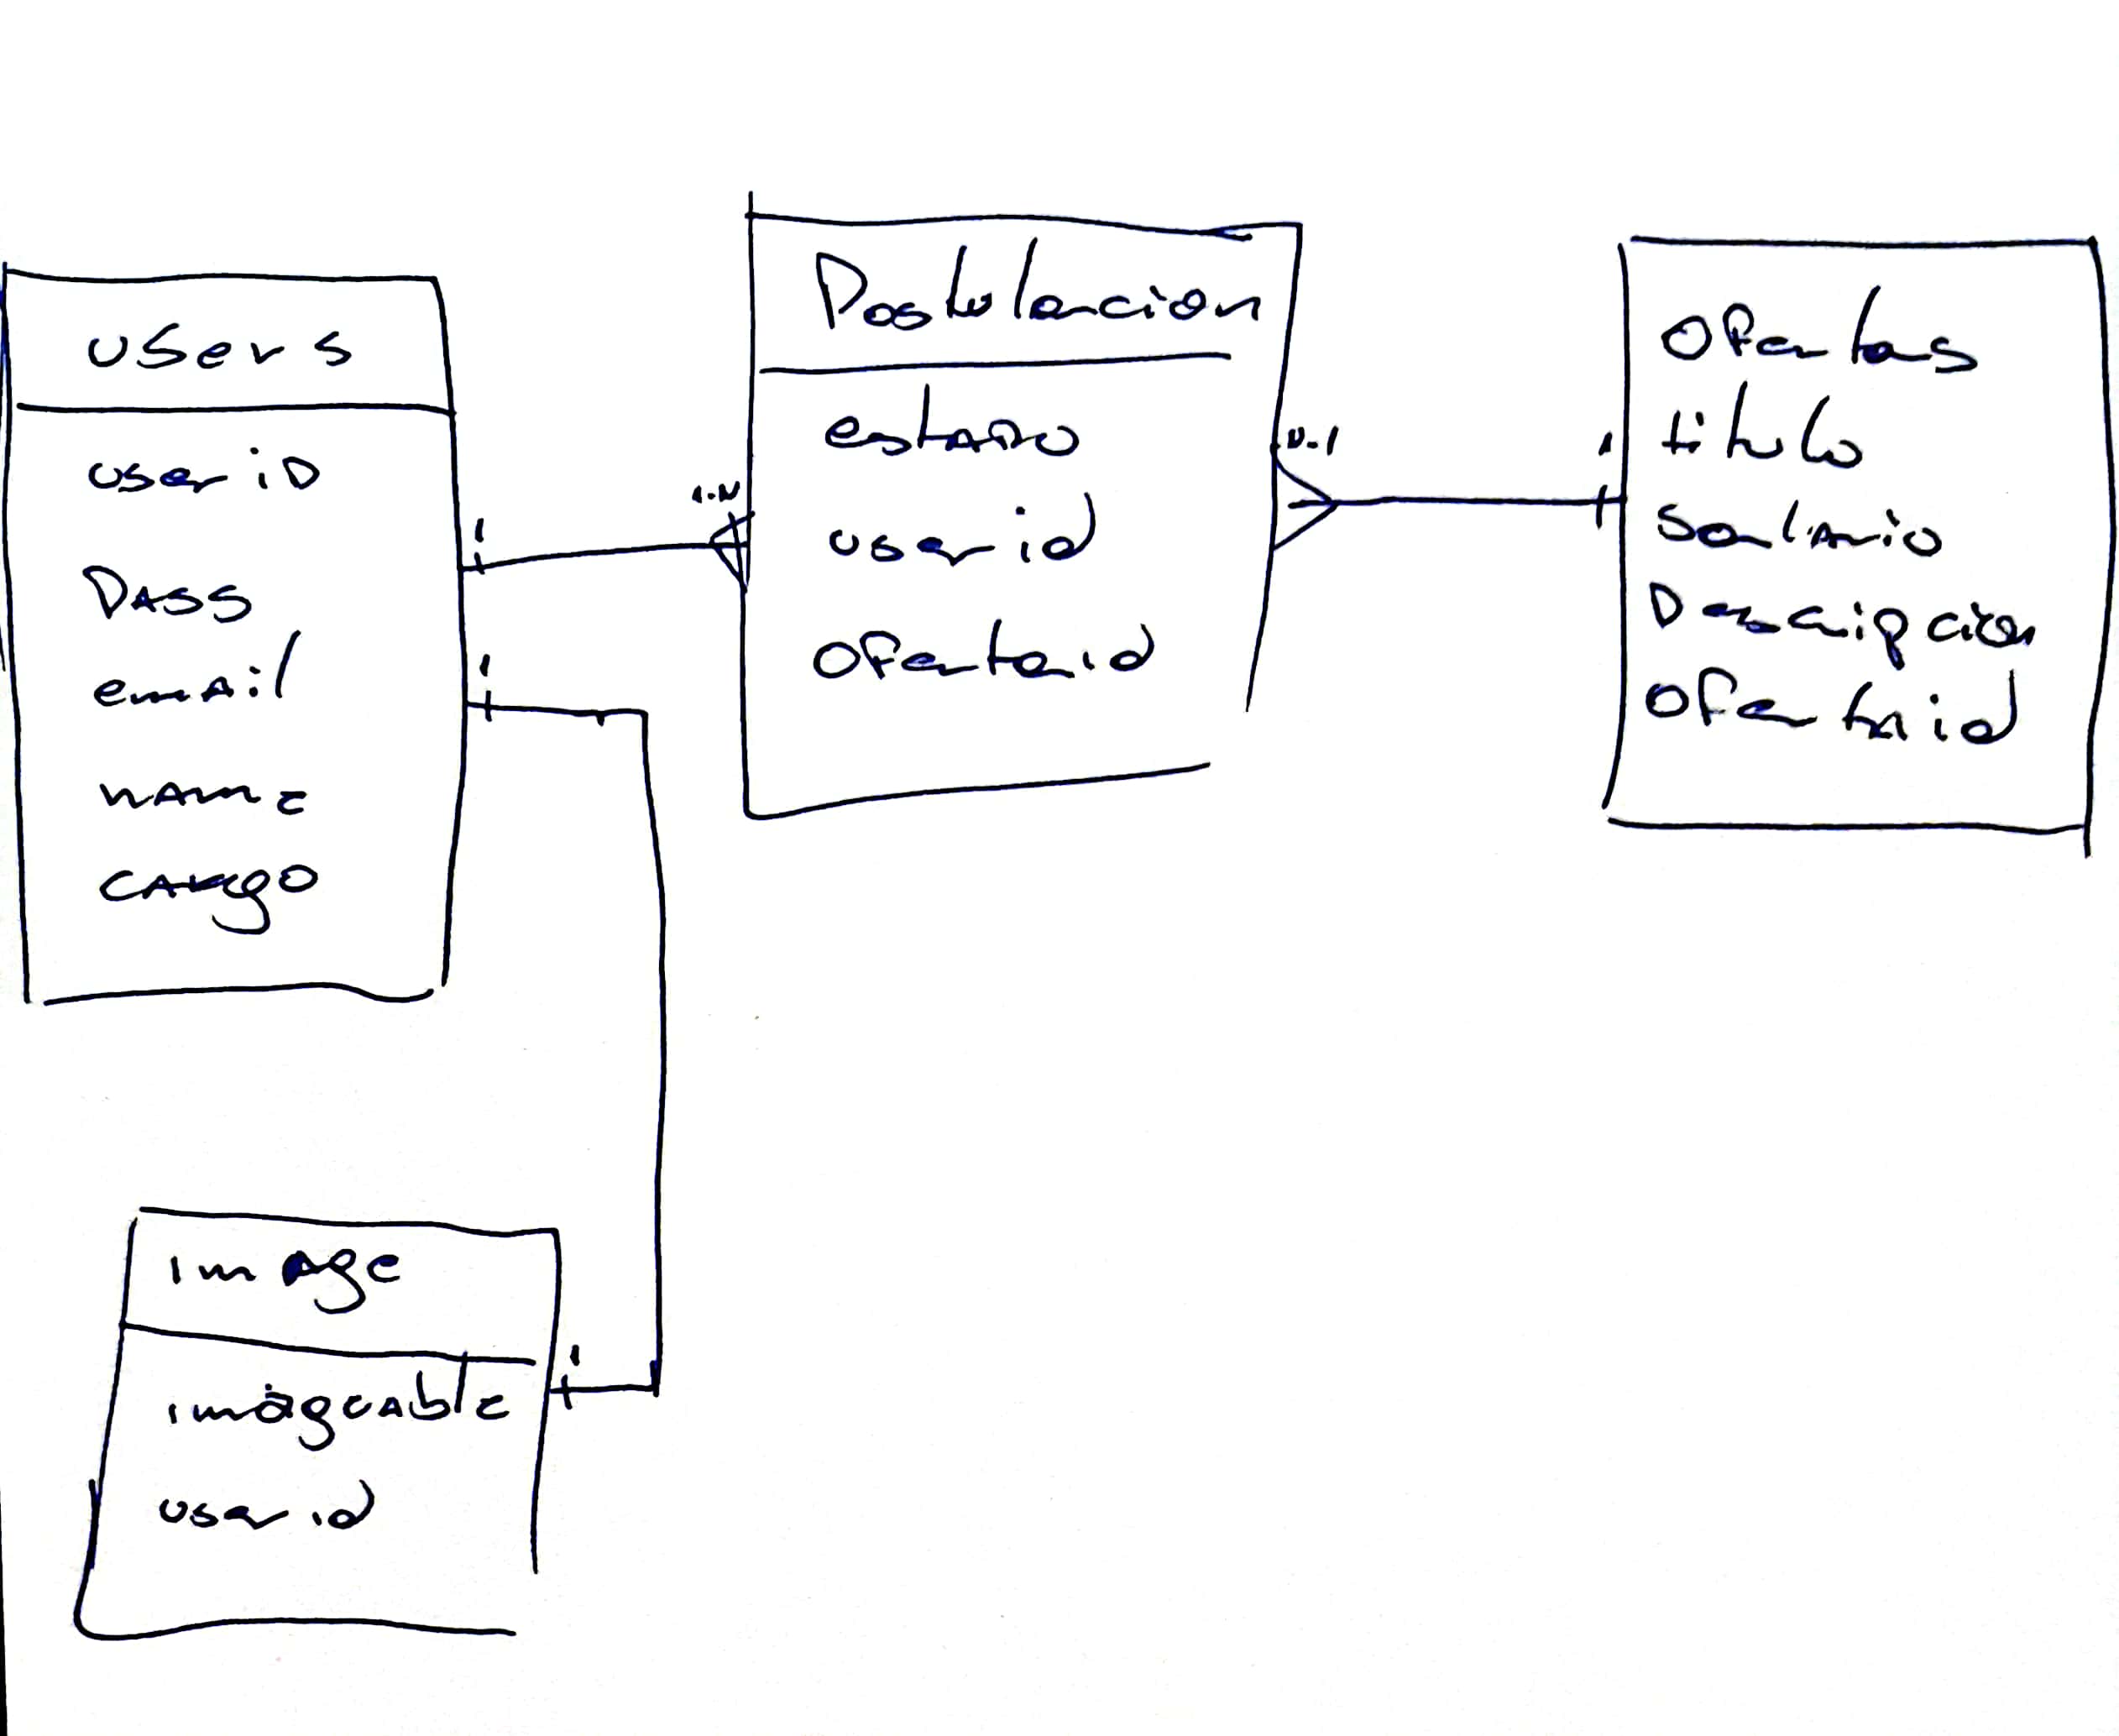 users
user iD
PASS
email
name
cargo
1
1
1..N
Postulacion
estado
user id
Ofertaid
N..1
1
Ofertas
titulo
Salario
Descripcion
Ofertaid
image
imageable
user id
1